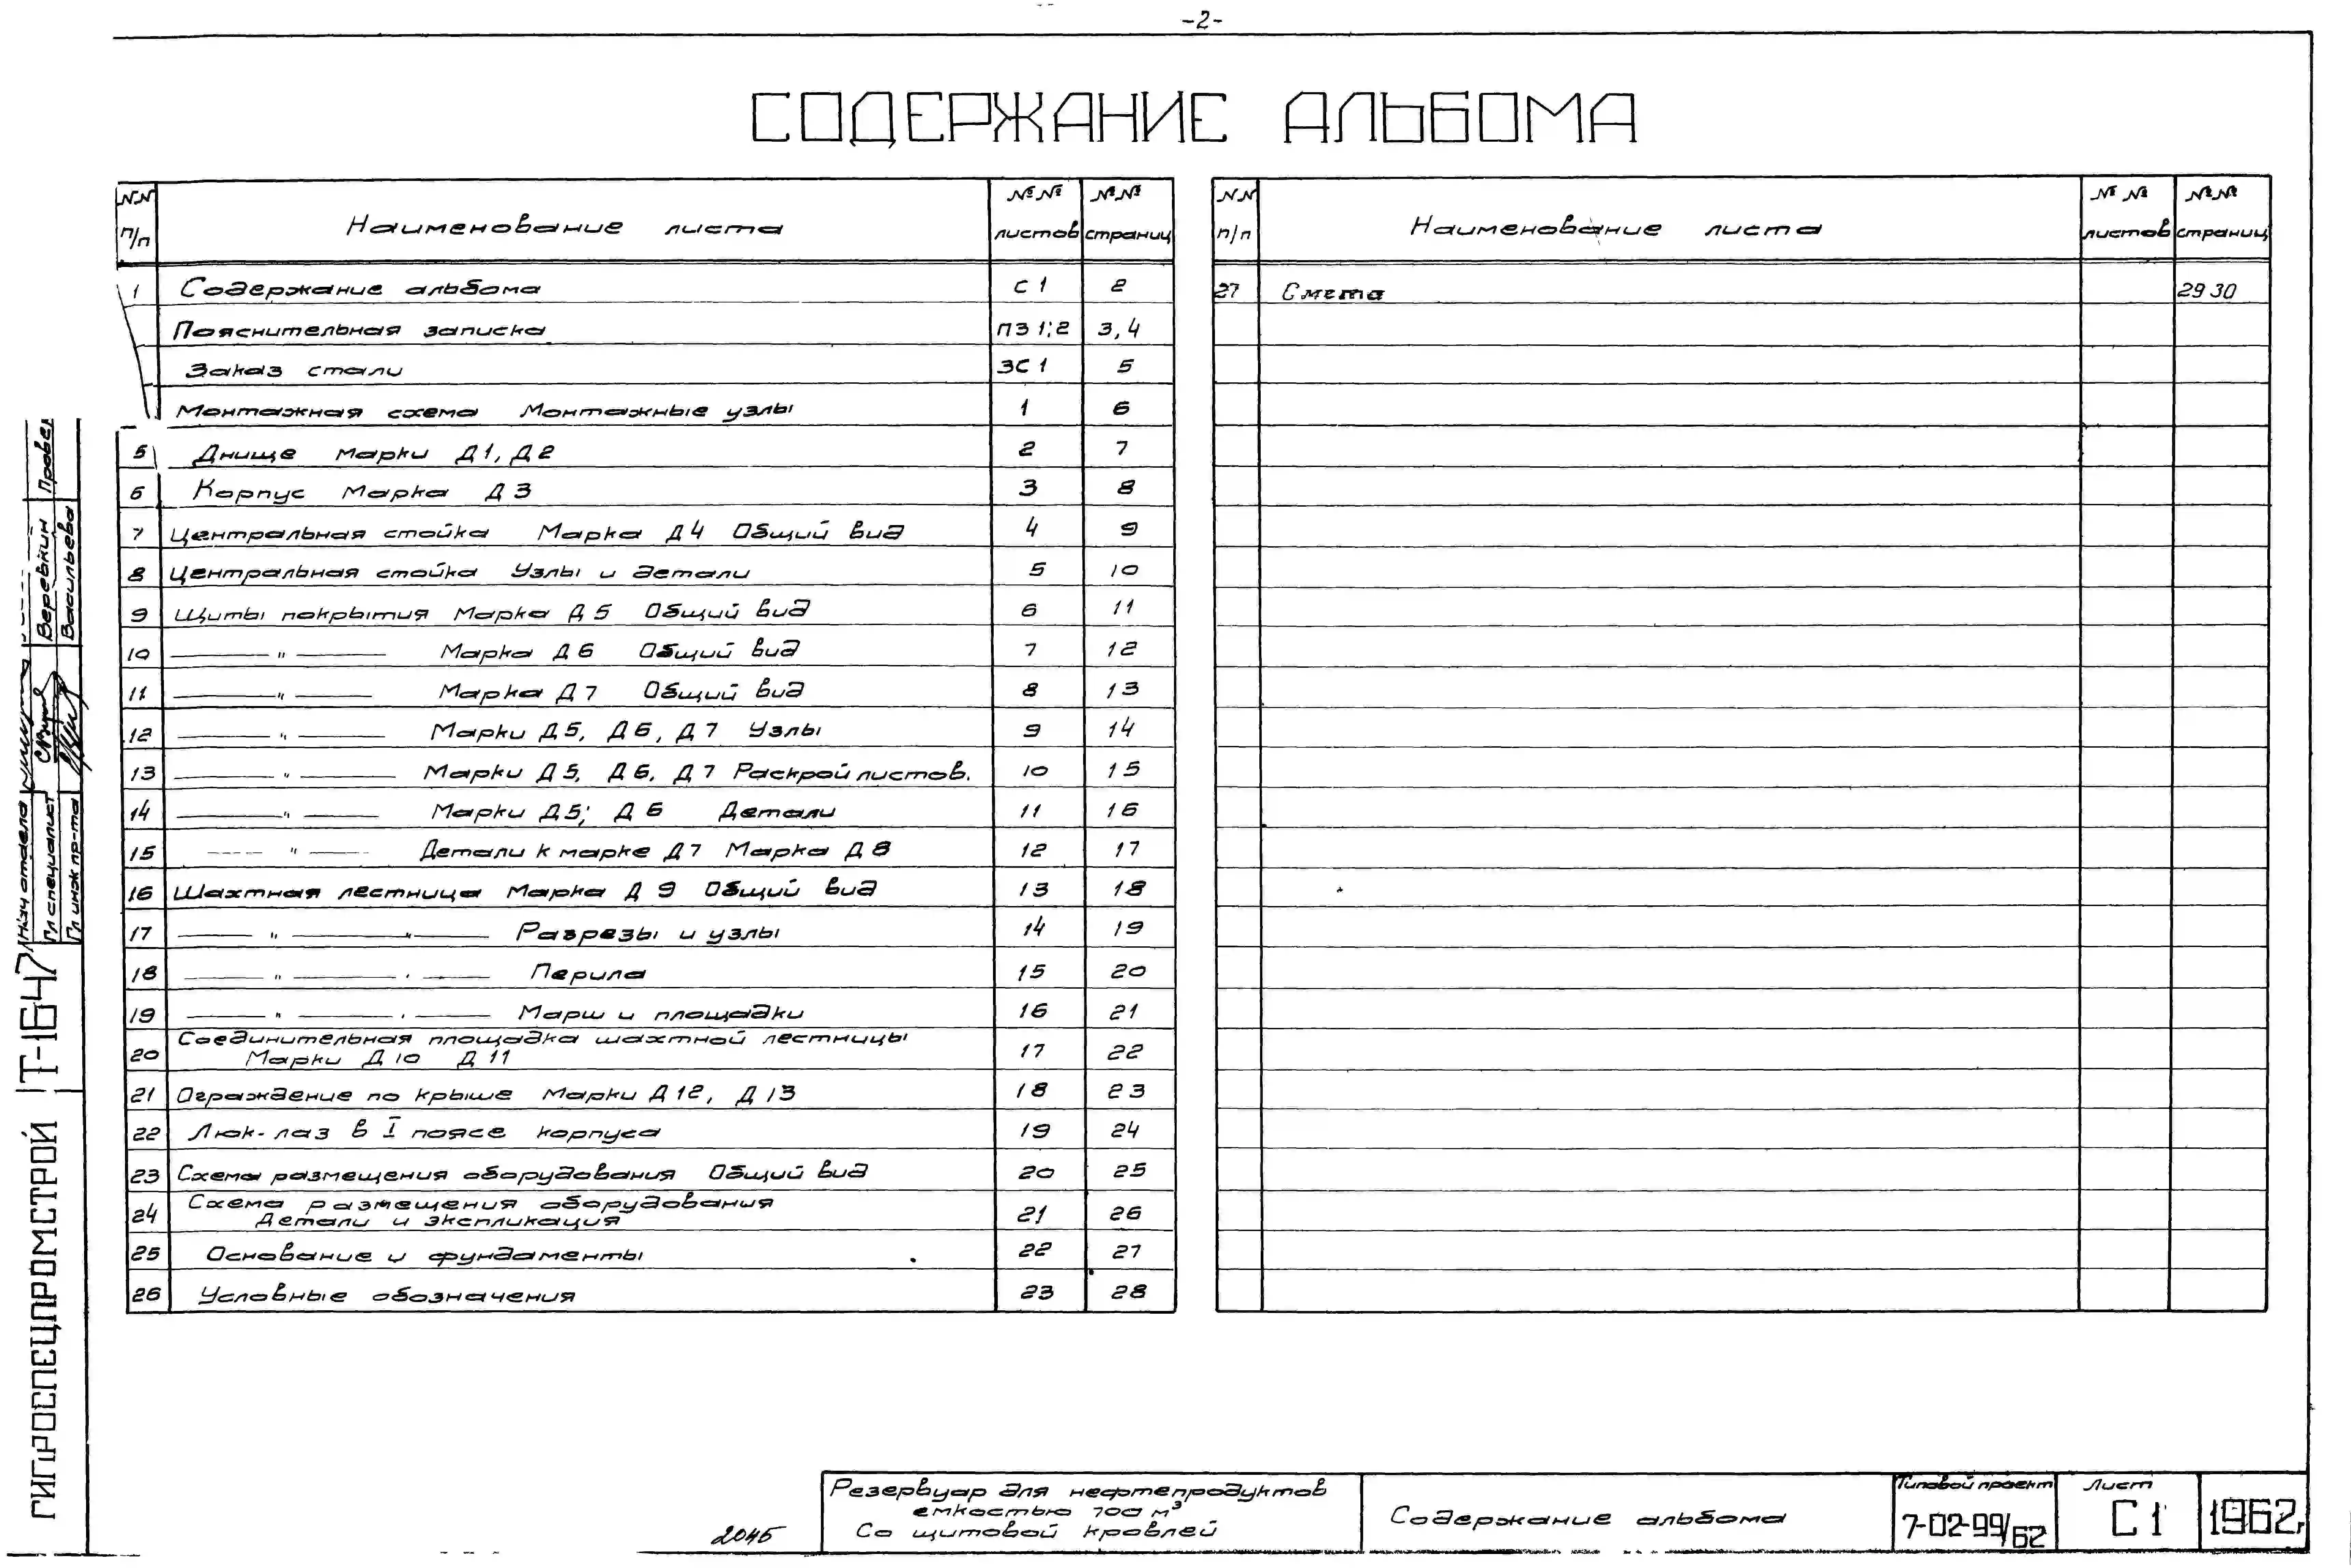 -2-
СОДЕРЖАНИЕ АЛЬБОМА
№№ п/п Наименование листа №№ листов №№ страниц
1 Содержание альбома С1 2
Пояснительная записка ПЗ 1;2 3,4
Заказ стали ЗС 1 5
Монтажная схема Монтажные узлы 1 6
5 Днище Марки Д1, Д2 2 7
6 Корпус Марка Д3 3 8
7 Центральная стойка Марка Д4 Общий вид 4 9
8 Центральная стойка Узлы и детали 5 10
9 Щиты покрытия Марка Д5 Общий вид 6 11
10 —— " —— Марка Д6 Общий вид 7 12
11 —— " —— Марка Д7 Общий вид 8 13
12 —— " —— Марки Д5, Д6, Д7 Узлы 9 14
13 —— " —— Марки Д5, Д6, Д7 Раскрой листов. 10 15
14 —— " —— Марки Д5; Д6 Детали 11 16
15 —— " —— Детали к марке Д7 Марка Д8 12 17
16 Шахтная лестница Марка Д9 Общий вид 13 18
17 —— " —— " —— Разрезы и узлы 14 19
18 —— " —— " —— Перила 15 20
19 —— " —— " —— Марш и площадки 16 21
20 Соединительная площадка шахтной лестницы
Марки Д10 Д11 17 22
21 Ограждение по крыше Марки Д12, Д13 18 23
22 Люк-лаз в I поясе корпуса 19 24
23 Схема размещения оборудования Общий вид 20 25
24 Схема размещения оборудования
Детали и экспликация 21 26
25 Основание и фундаменты 22 27
26 Условные обозначения 23 28
№№ п/п Наименование листа №№ листов №№ страниц
27 Смета 29 30
Провер
Веревкин
Васильева
Нач отдела
Гл специалист
Гл инж пр-та
Т-1647
ГИПРОСПЕЦПРОМСТРОЙ
2045
Резервуар для нефтепродуктов
емкостью 700 м³
Со щитовой кровлей
Содержание альбома
Типовой проект
7-02-99/62
Лист
С1
1962г